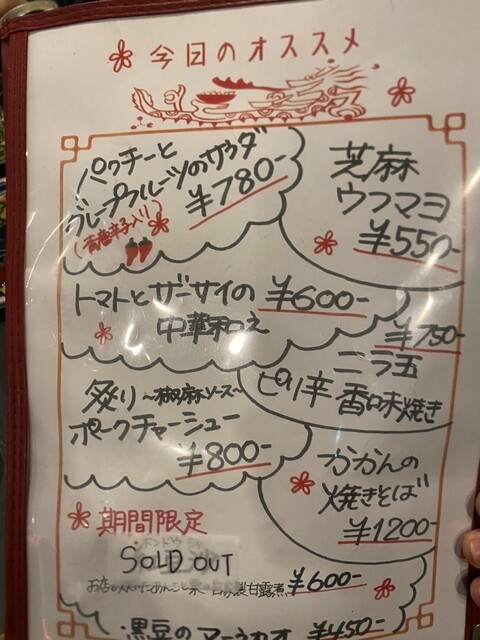 今日のオススメ
パクチーと
グレープフルーツのサラダ
(青唐辛子入り)
¥780-
芝麻
ウフマヨ
¥550-
トマトとザーサイの
中華和え
¥600-
¥750-
ニラ玉
ピリ辛 香味焼き
炙り ~椒麻ソース~
ポークチャーシュー
¥800-
かかんの
焼きそば
¥1200-
期間限定
SOLD OUT
甘露煮 ¥600-
・黒豆のマーラカオ ¥450-